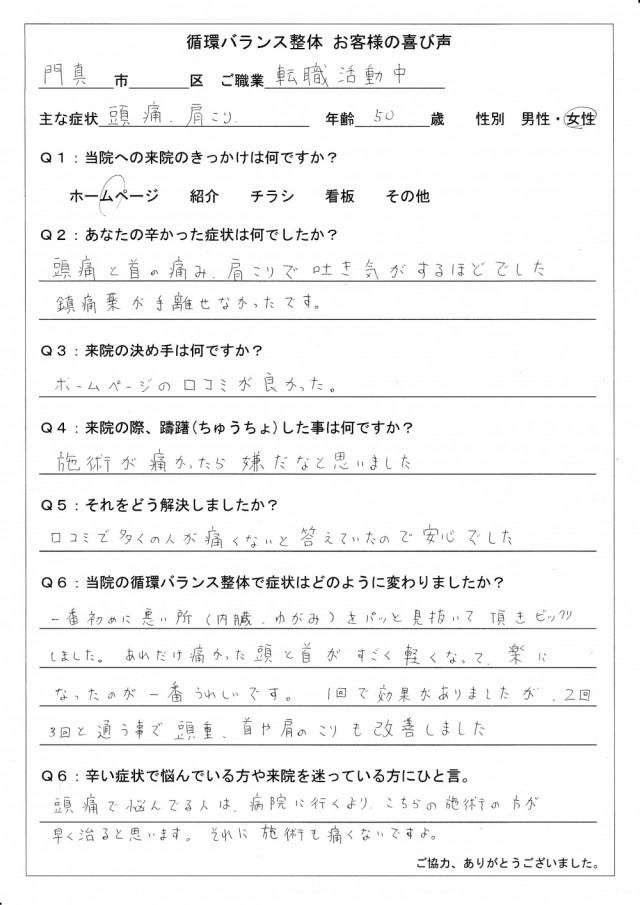 循環バランス整体 お客様の喜び声
門真 市 区 ご職業 転職活動中
主な症状 頭痛、肩こり 年齢 50 歳 性別 男性・女性
Q1:当院への来院のきっかけは何ですか?
ホームページ 紹介 チラシ 看板 その他
Q2:あなたの辛かった症状は何でしたか?
頭痛と首の痛み、肩こりで吐き気がするほどでした
鎮痛薬が手離せなかったです。
Q3:来院の決め手は何ですか?
ホームページの口コミが良かった。
Q4:来院の際、躊躇(ちゅうちょ)した事は何ですか?
施術が痛かったら嫌だなと思いました
Q5:それをどう解決しましたか?
口コミで多くの人が痛くないと答えていたので安心でした
Q6:当院の循環バランス整体で症状はどのように変わりましたか?
一番初めに悪い所(内臓、ゆがみ)をパッと見抜いて頂きビックリ
しました。あれだけ痛かった頭と首がすごく軽くなって、楽に
なったのが一番うれしいです。1回で効果がありましたが、2回
3回と通う事で頭重、首や肩のこりも改善しました
Q6:辛い症状で悩んでいる方や来院を迷っている方にひと言。
頭痛で悩んでる人は、病院に行くより、こちらの施術の方が
早く治ると思います。それに施術も痛くないですよ。
ご協力、ありがとうございました。